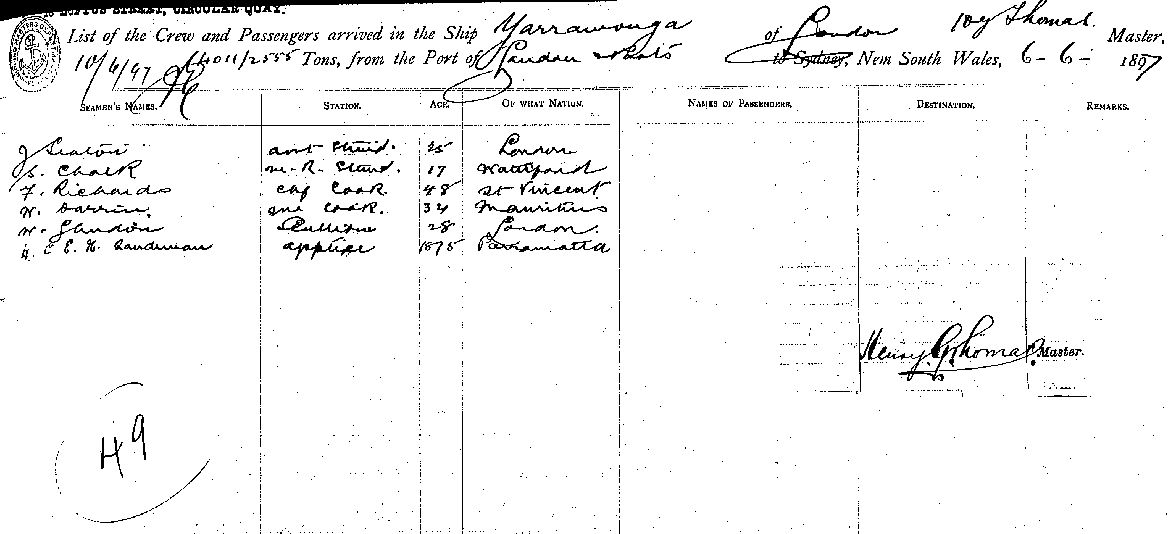 LOFTUS STREET, CIRCULAR QUAY.
List of the Crew and Passengers arrived in the Ship Yarrawonga of London Thomas. Master,
10/6/97 4011/2555 Tons, from the Port of London to Sydney, New South Wales, 6-6- 1897
SEAMEN'S NAMES. STATION. AGE. OF WHAT NATION. NAMES OF PASSENGERS. DESTINATION. REMARKS.
J Seaton 25 London
S. Chalk 17
F. Richards Cook 48 St Vincent
W. Cook. 34 Mauritius
W. 28 London.
E. H. Sandeman apptice 1875 Parramatta
Henry G Thomas Master.
49